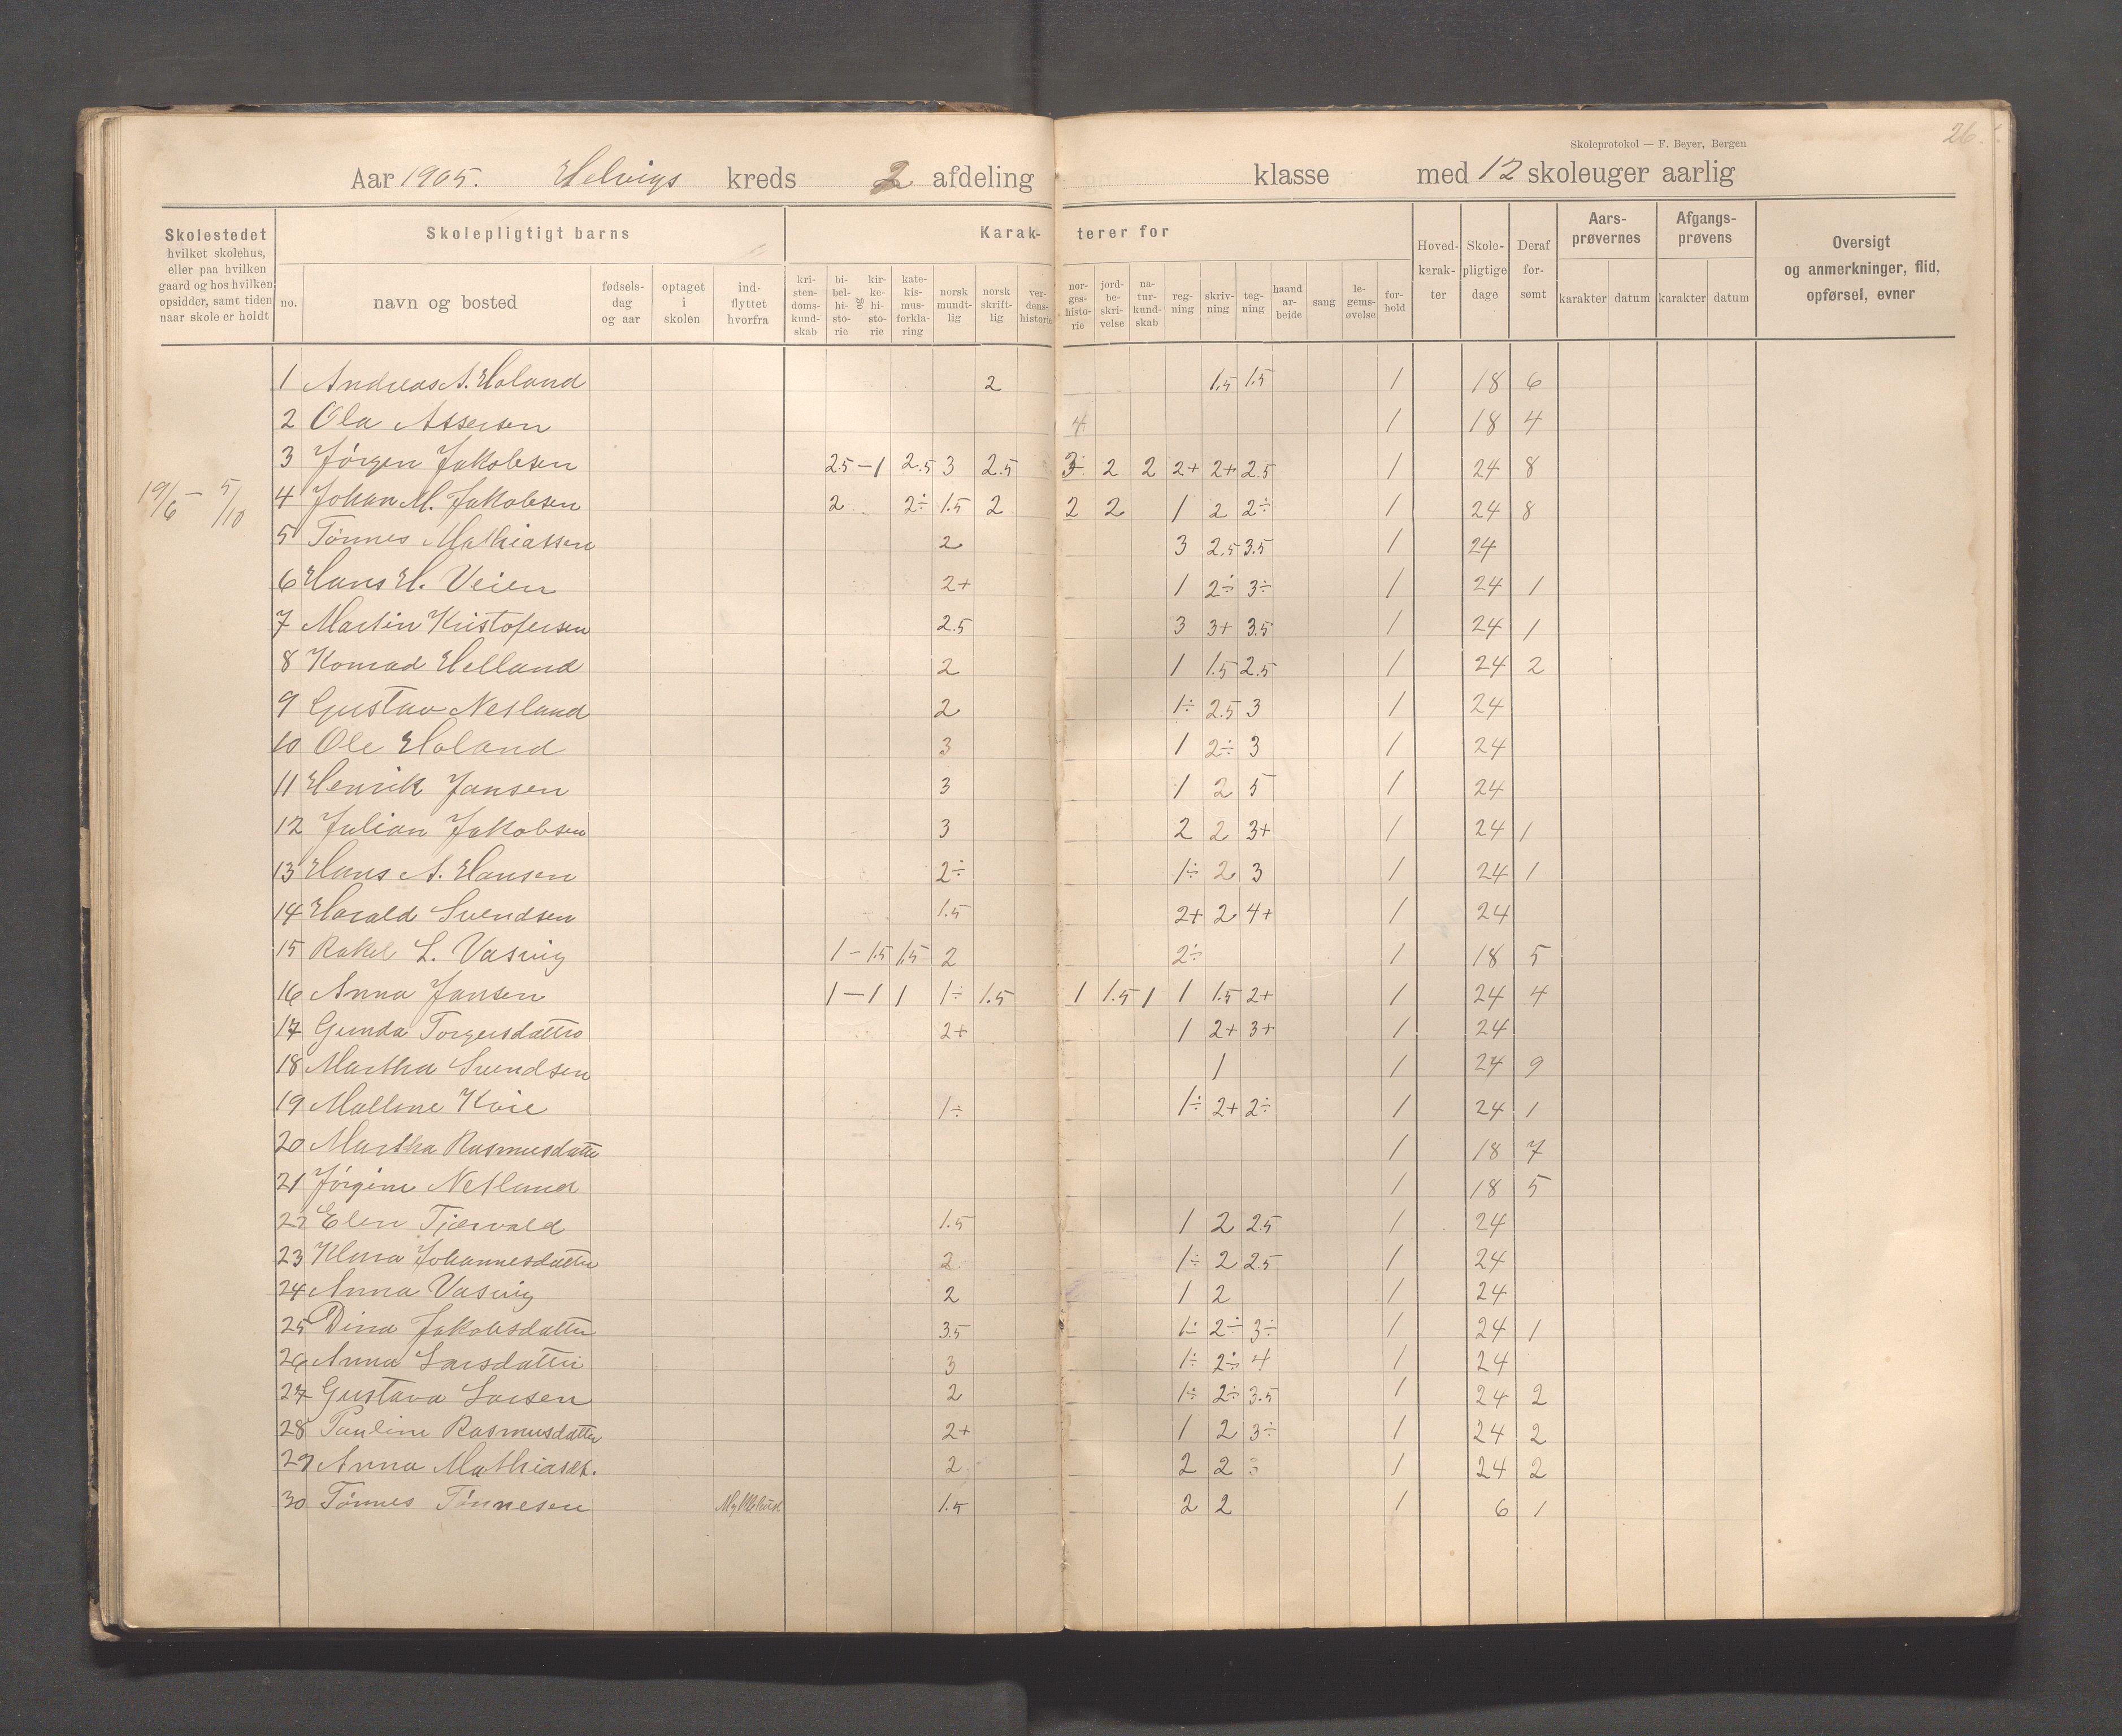 26.
Skoleprotokol — F. Beyer, Bergen
Aar 1905. Helvigs kreds 2 afdeling klasse med 12 skoleuger aarlig
Skolestedet hvilket skolehus, eller paa hvilken gaard og hos hvilken opsidder, samt tiden naar skole er holdt
Skolepligtigt barns
no. navn og bosted fødsels-dag og aar optaget i skolen ind-flyttet hvorfra
Karak- terer for
kri-sten-doms-kund-skab bi-bel-hi-sto-rie og kir-ke-hi-sto-rie kate-kis-mus-forkla-ring norsk mundt-lig norsk skrift-lig ver-dens-historie nor-ges-histo-rie jord-be-skri-velse na-tur-kund-skab reg-ning skriv-ning teg-ning haand ar-beide sang le-gems-øvelse for-hold
Hoved-karak-ter Skole-pligtige dage Deraf for-sømt
Aars-prøvernes karakter datum
Afgangs-prøvens karakter datum
Oversigt og anmerkninger, flid, opførsel, evner
19/6 — 5/10
1 Andreas A. Holand 2 1.5 1.5 1 18 6
2 Ola Assersen 4 1 18 4
3 Jörgen Jakobsen 2.5 — 1 2.5 3 2.5 3 2 2 2+ 2+ 2.5 1 24 8
4 Johan M. Jakobsen 2 2÷ 1.5 2 2 2 1 2 2÷ 1 24 8
5 Tönnes Mathiassen 2 3 2.5 3.5 1 24
6 Hans H. Veien 2+ 1 2÷ 3÷ 1 24 1
7 Martin Kristofersen 2.5 3 3+ 3.5 1 24 1
8 Konrad Helland 2 1 1.5 2.5 1 24 2
9 Gustav Nesland 2 1÷ 2.5 3 1 24
10 Ole Holand 3 1 2÷ 3 1 24
11 Henrik Jansen 3 1 2 5 1 24
12 Julian Jakobsen 3 2 2 3+ 1 24 1
13 Hans A. Hansen 2÷ 1÷ 2 3 1 24 1
14 Harald Svendsen 1.5 2+ 2 4+ 1 24
15 Rakel L. Vasvig 1 — 1.5 1.5 2 2÷ 1 18 5
16 Anna Jansen 1 — 1 1 1÷ 1.5 1 1.5 1 1 1.5 2+ 1 24 4
17 Gunda Torgersdatter 2+ 1 2+ 3+ 1 24
18 Martha Svendsen 1 1 24 9
19 Mallene Kvie 1÷ 1÷ 2+ 2÷ 1 24 1
20 Martha Rasmusdatter 1 18 7
21 Jörgine Nesland 1 18 5
22 Elen Tjersvald 1.5 1 2 2.5 1 24
23 Klara Johannesdatter 2 1÷ 2 2.5 1 24
24 Anna Vasvig 2 1 2 1 24
25 Dina Jakobsdatter 3.5 1÷ 2÷ 3÷ 1 24 1
26 Anna Larsdatter 3 1÷ 2÷ 4 1 24
27 Gustava Larsen 2 1÷ 2÷ 3.5 1 24 2
28 Pauline Rasmusdatter 2+ 1 2 3÷ 1 24 2
29 Anna Mathiasdt. 2 2 2 3 1 24 2
30 Tönnes Tönnesen 1.5 2 2 1 6 1